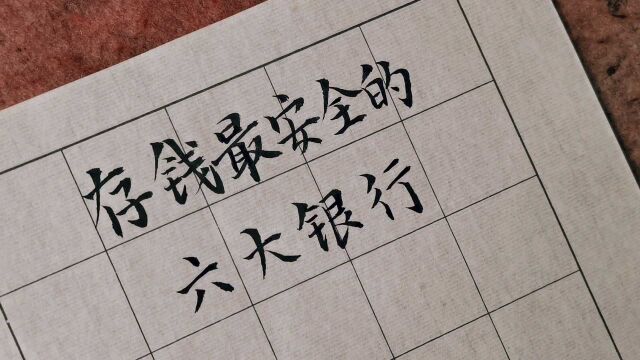 存钱最安全的
六大银行